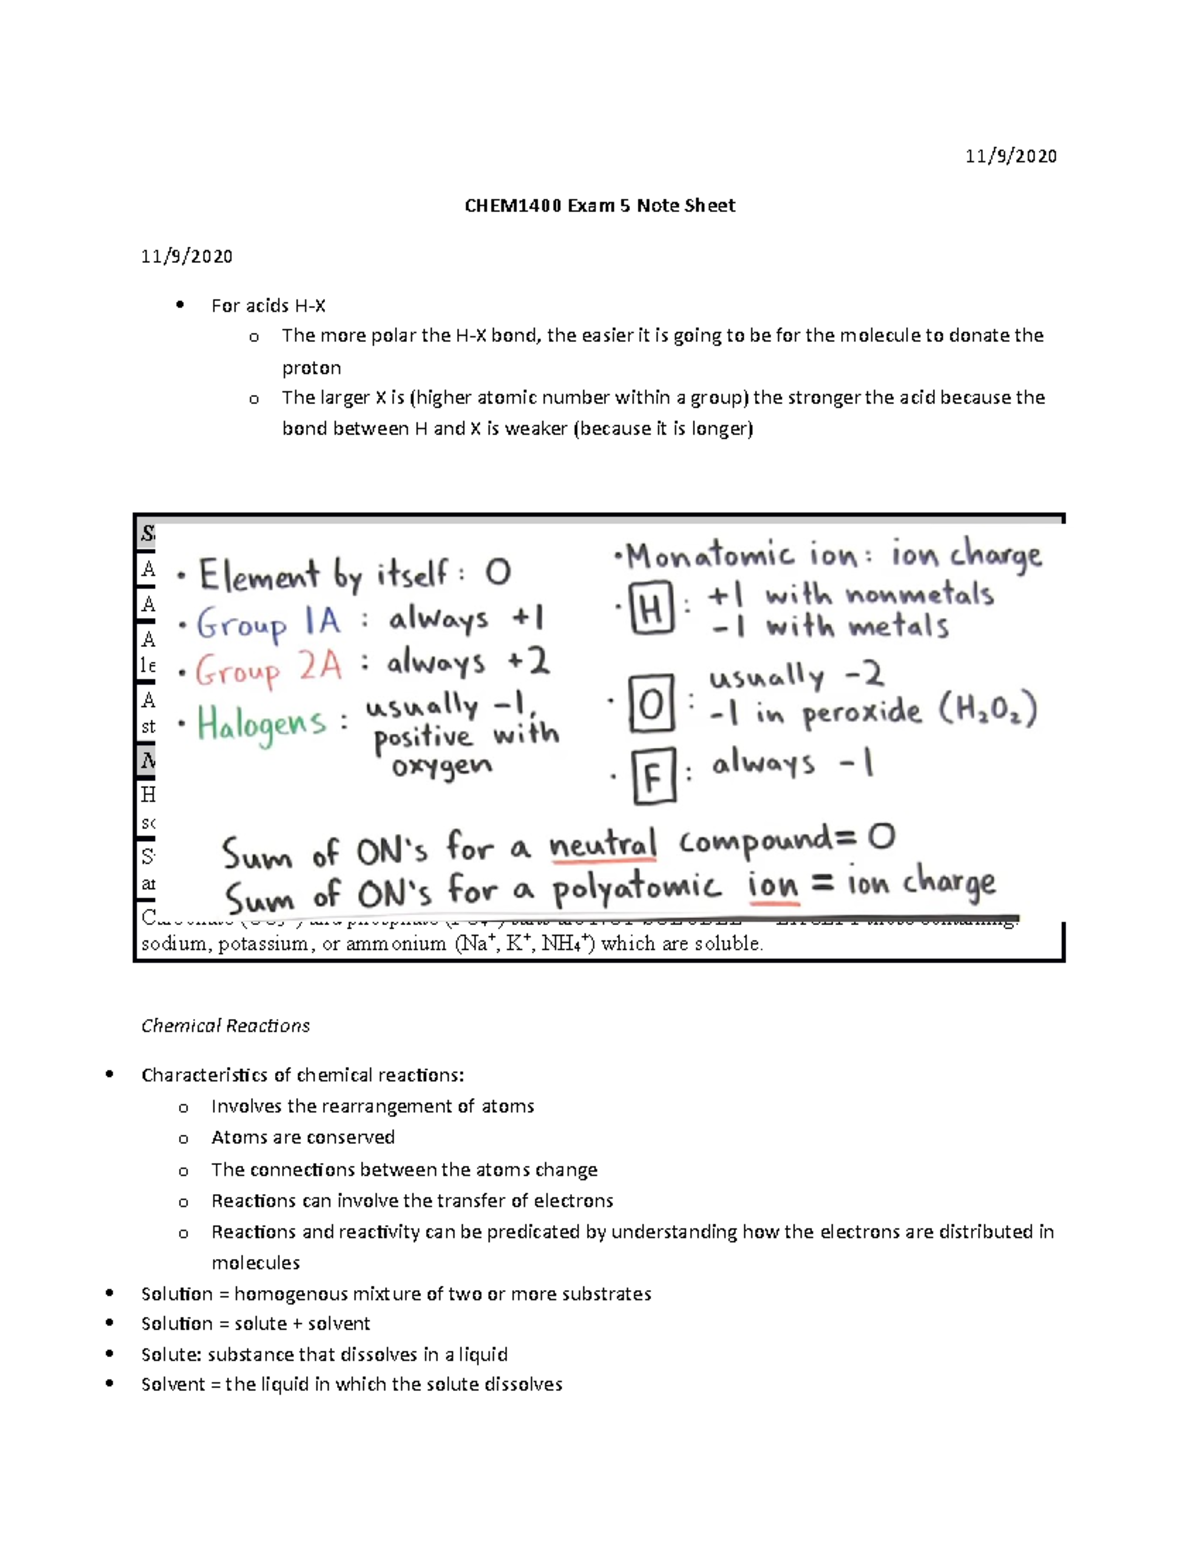 11/9/2020
CHEM1400 Exam 5 Note Sheet
11/9/2020
• For acids H-X
o The more polar the H-X bond, the easier it is going to be for the molecule to donate the
proton
o The larger X is (higher atomic number within a group) the stronger the acid because the
bond between H and X is weaker (because it is longer)
• Element by itself : 0
• Group 1A : always +1
• Group 2A : always +2
• Halogens : usually -1,
positive with
oxygen
• Monatomic ion : ion charge
• H : +1 with nonmetals
-1 with metals
• O : usually -2
-1 in peroxide (H₂O₂)
• F : always -1
Sum of ON's for a neutral compound = 0
Sum of ON's for a polyatomic ion = ion charge
sodium, potassium, or ammonium (Na⁺, K⁺, NH₄⁺) which are soluble.
Chemical Reactions
• Characteristics of chemical reactions:
o Involves the rearrangement of atoms
o Atoms are conserved
o The connections between the atoms change
o Reactions can involve the transfer of electrons
o Reactions and reactivity can be predicated by understanding how the electrons are distributed in
molecules
• Solution = homogenous mixture of two or more substrates
• Solution = solute + solvent
• Solute: substance that dissolves in a liquid
• Solvent = the liquid in which the solute dissolves